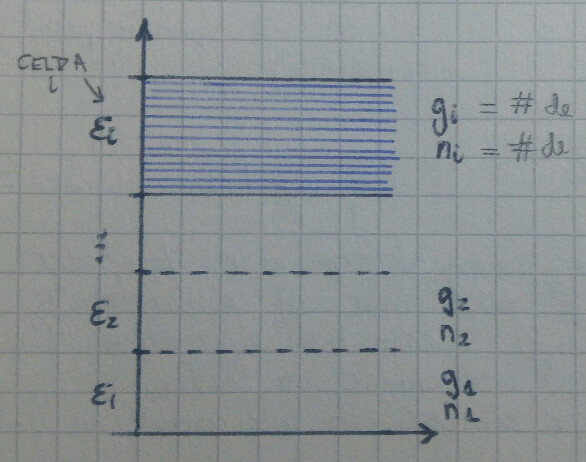 CELDA
i
εi
gi = # de
ni = # de
⋮
ε2
g2
n2
εi
g1
n1